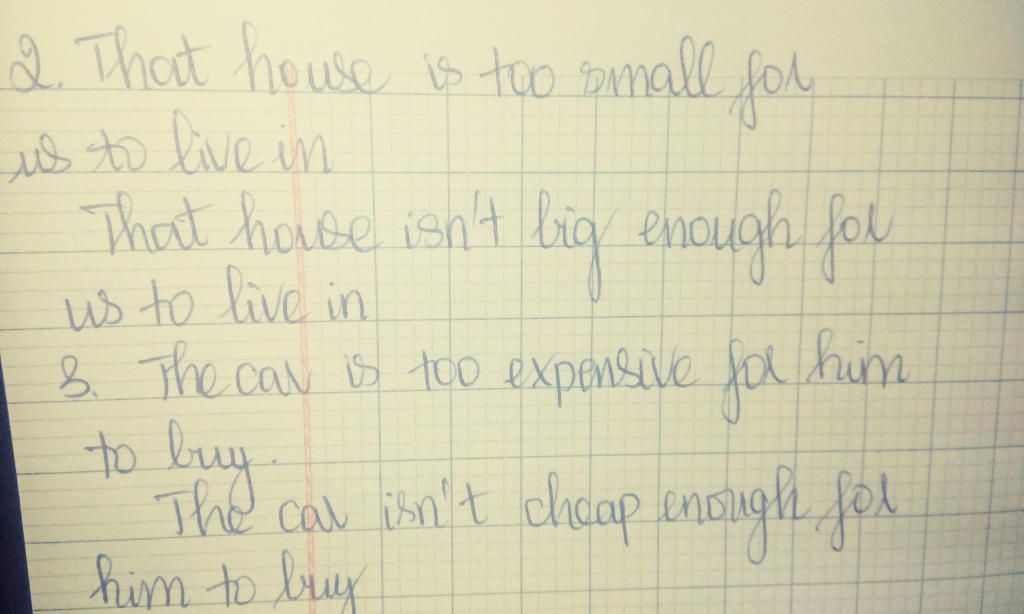 2. That house is too small for
us to live in
That house isn't big enough for
us to live in
3. The car is too expensive for him
to buy.
The car isn't cheap enough for
him to buy